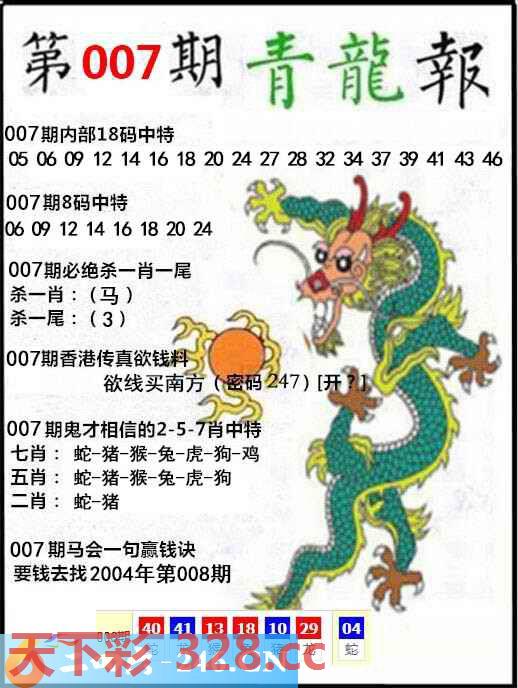 第007期青龍報
007期内部18码中特
05 06 09 12 14 16 18 20 24 27 28 32 34 37 39 41 43 46
007期8码中特
06 09 12 14 16 18 20 24
009期必绝杀一肖一尾
杀一肖：（马）
杀一尾：（3）
007期香港传真欲钱料
欲线买南方（密码247）[开？]
007期鬼才相信的2-5-7肖中特
七肖：蛇-猪-猴-兔-虎-狗-鸡
五肖：蛇-猪-兔-虎-狗
二肖：蛇-猪
007期马会一句赢钱诀
要钱去找2004年第008期
40 41 13 18 10 29 04
蛇 龙 猪 龙 蛇
天下彩-328.cc